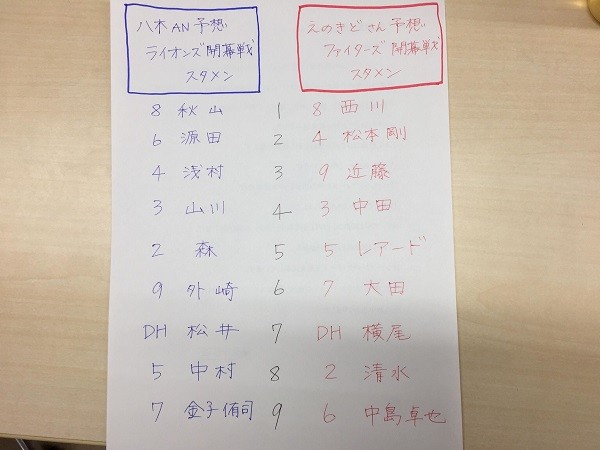 八木AN予想
ライオンズ開幕戦
スタメン
えのきどさん予想
ファイターズ開幕戦
スタメン
8 秋山 1 8 西川
6 源田 2 4 松本剛
4 浅村 3 9 近藤
3 山川 4 3 中田
2 森 5 5 レアード
9 外崎 6 7 大田
DH 松井 7 DH 横尾
5 中村 8 2 清水
7 金子侑司 9 6 中島卓也